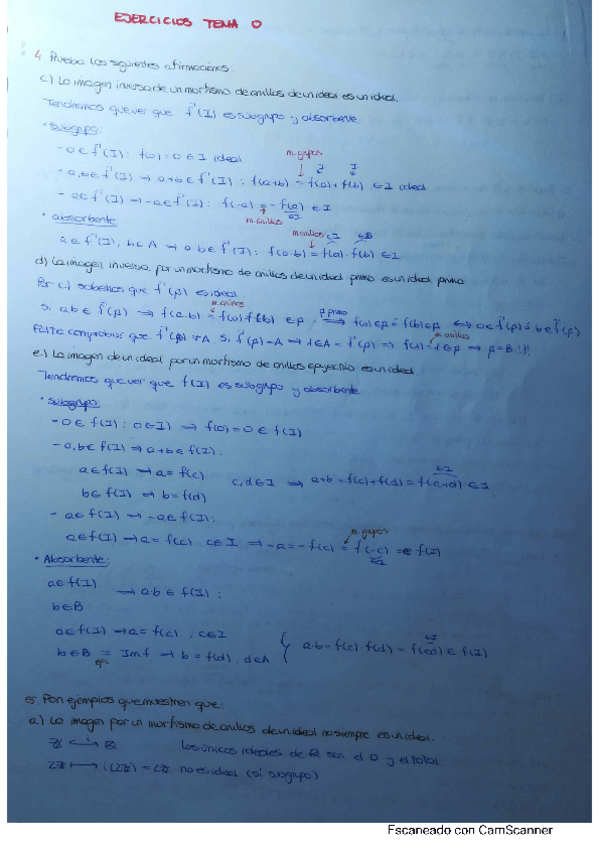 EJERCICIOS TEMA 0
4. Prueba las siguientes afirmaciones.
c) La imagen inversa de un morfismo de anillos de un ideal es un ideal.
Tendremos que ver que f⁻¹(I) es subgrupo y absorbente.
· Subgrupo:
- 0 ∈ f⁻¹(I): f(0) = 0 ∈ I ideal
m. grupos I I
- a, b ∈ f⁻¹(I) → a+b ∈ f⁻¹(I): f(a+b) = f(a) + f(b) ∈ I ideal
- a ∈ f⁻¹(I) → -a ∈ f⁻¹(I): f(-a) = -f(a) ∈ I
∈I
m. anillos
· absorbente
m. anillos ∈I ∈B
a ∈ f⁻¹(I), b ∈ A → a·b ∈ f⁻¹(I): f(a·b) = f(a)·f(b) ∈ I
d) La imagen inversa por un morfismo de anillos de un ideal primo es un ideal primo.
Por c) sabemos que f⁻¹(p) es ideal.
m. anillos p primo
Si ab ∈ f⁻¹(p) → f(a·b) = f(a)·f(b) ∈ p ⟹ f(a) ∈ p ó f(b) ∈ p ⟺ a ∈ f⁻¹(p) ó b ∈ f⁻¹(p)
m. anillos
Falta comprobar que f⁻¹(p) ≠ A. Si f⁻¹(p) = A → 1 ∈ A = f⁻¹(p) ⇒ f(1) = 1 ∈ p → p = B !!
e) La imagen de un ideal por un morfismo de anillos epyectivo es un ideal
Tendremos que ver que f(I) es subgrupo y absorbente
· Subgrupo:
- 0 ∈ f(I): 0 ∈ I ⟹ f(0) = 0 ∈ f(I)
- a, b ∈ f(I) ⟹ a+b ∈ f(I):
∈I
a ∈ f(I) → a = f(c) c, d ∈ I ⟹ a+b = f(c)+f(d) = f(c+d) ∈ I
b ∈ f(I) ⟹ b = f(d)
- a ∈ f(I) → -a ∈ f(I):
m. grupos
a ∈ f(I) → a = f(c) c ∈ I ⟹ -a = -f(c) = f(-c) ∈ f(I)
∈I
· Absorbente:
a ∈ f(I)
→ a·b ∈ f(I):
b ∈ B
a ∈ f(I) → a = f(c), c ∈ I
∈I
b ∈ B = Im f → b = f(d), d ∈ A { a·b = f(c) f(d) = f(cd) ∈ f(I)
epi
5. Pon ejemplos que muestren que:
a) La imagen por un morfismo de anillos de un ideal no siempre es un ideal.
ℤ ↪ ℚ Los únicos ideales de ℚ son el 0 y el total.
2ℤ ⟼ i(2ℤ) = 2ℤ no es ideal (sí subgrupo)
Escaneado con CamScanner